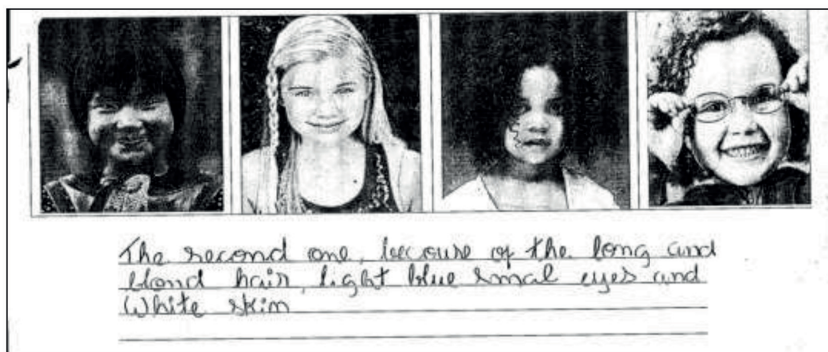 The second one, becouse of the long and
blond hair, light blue smal eyes and
White skin